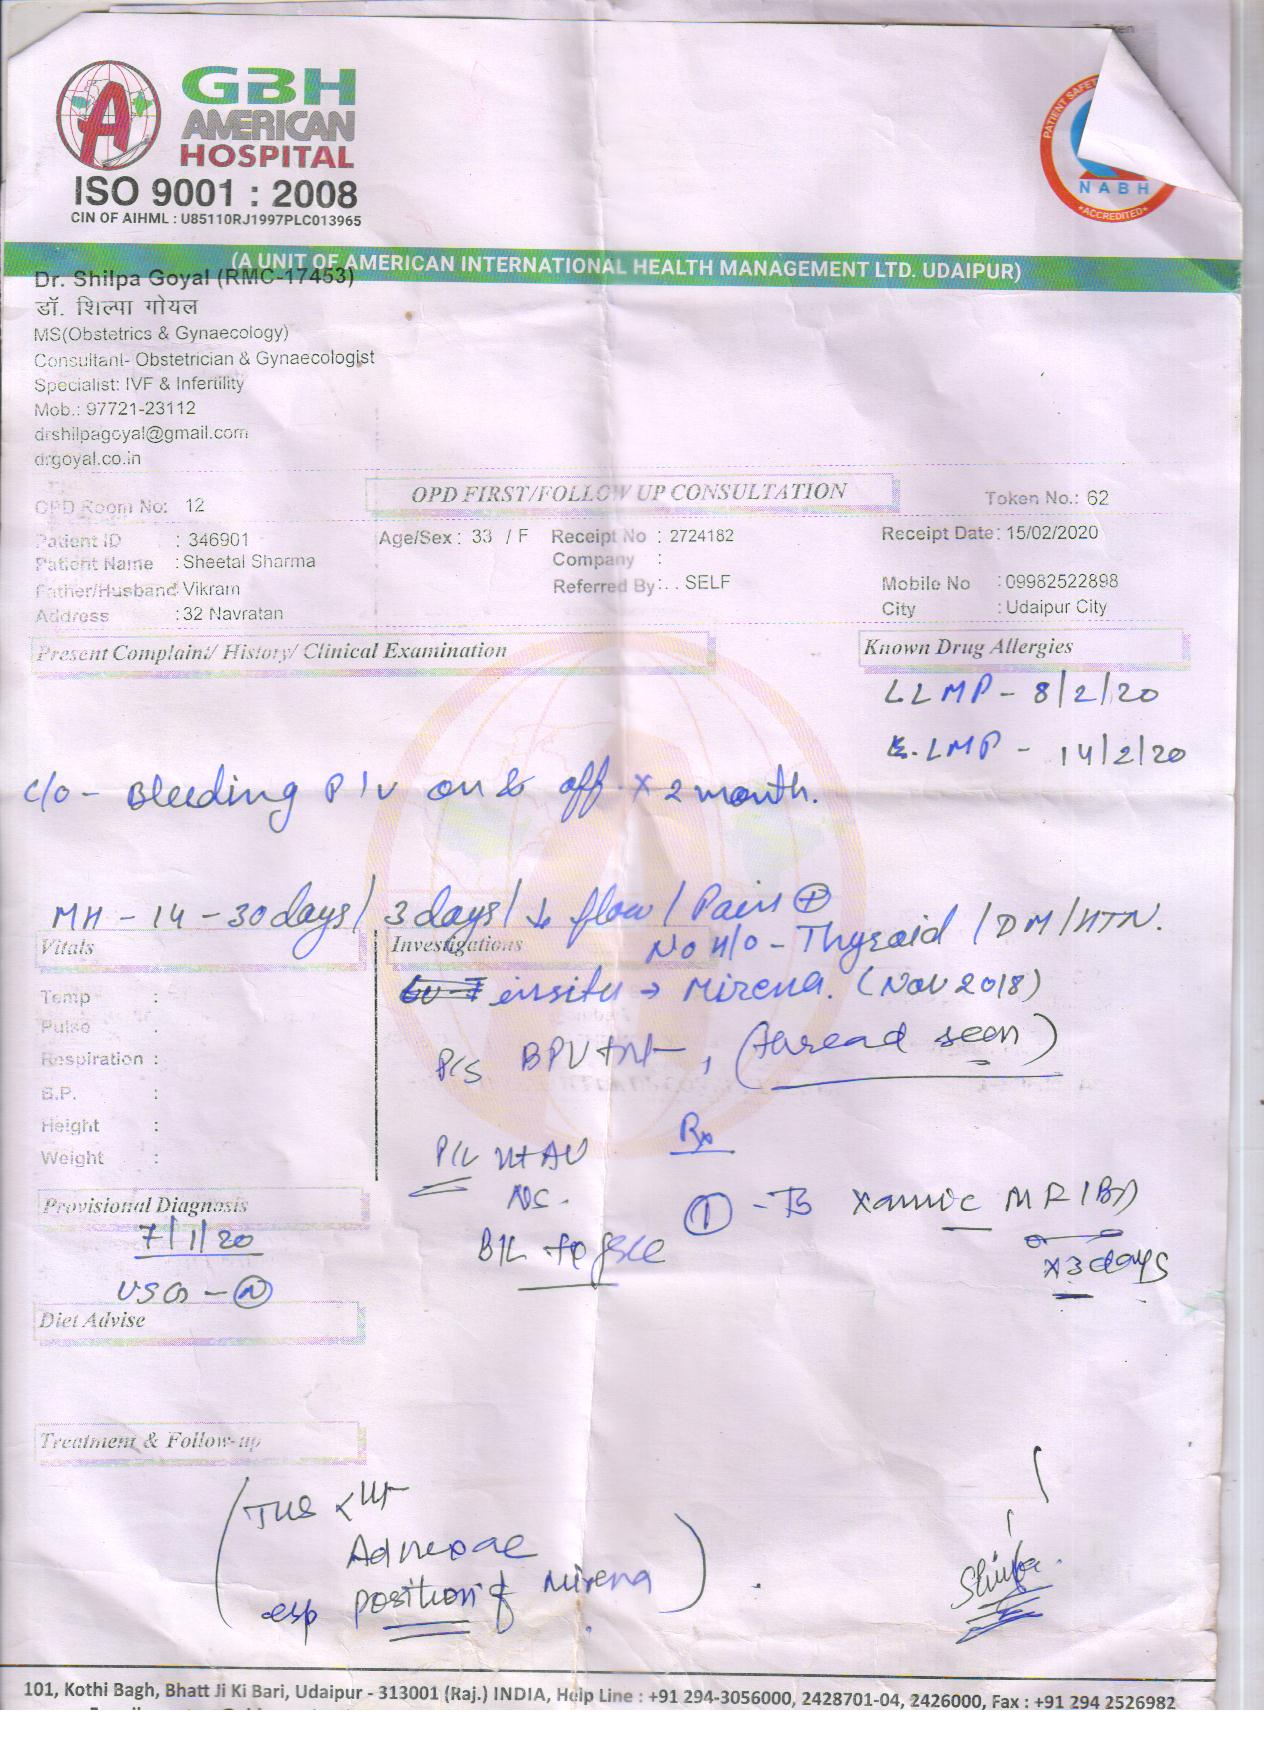 GBH
AMERICAN
HOSPITAL
ISO 9001 : 2008
CIN OF AIHML : U85110RJ1997PLC013965
PATIENT SAFETY
NABH
ACCREDITED
(A UNIT OF AMERICAN INTERNATIONAL HEALTH MANAGEMENT LTD. UDAIPUR)
Dr. Shilpa Goyal (RMC-17453)
डॉ. शिल्पा गोयल
MS(Obstetrics & Gynaecology)
Consultant- Obstetrician & Gynaecologist
Specialist: IVF & Infertility
Mob.: 97721-23112
drshilpagoyal@gmail.com
drgoyal.co.in
OPD FIRST/FOLLOW UP CONSULTATION
OPD Room No: 12 Token No.: 62
Patient ID : 346901 Age/Sex : 33 / F Receipt No : 2724182 Receipt Date: 15/02/2020
Patient Name : Sheetal Sharma Company :
Father/Husband Vikram Referred By: . . SELF Mobile No : 09982522898
Address : 32 Navratan City : Udaipur City
Present Complaint/ History/ Clinical Examination Known Drug Allergies
LLMP - 8/2/20
LMP - 14/2/20
c/o - Bleeding P/V on & off x 2 month.
MH - 14 - 30 days / 3 days / ↓ flow / Pain ⊕
No H/O - Thyroid / DM / HTN.
Vitals Investigations
insitu → Mirena. (Nov 2018)
Temp :
Pulse :
P/S BPV, (thread seen)
Respiration :
B.P. :
Height :
Weight :
Rx
P/V Ut AV
NS.
Provisional Diagnosis
7/1/20
① - T MF (BD)
B/L
x 3 days
USG - Ⓝ
Diet Advise
Treatment & Follow-up
(TVS < Ut
Adnexae
esp position of Mirena)
Shilpa
101, Kothi Bagh, Bhatt Ji Ki Bari, Udaipur - 313001 (Raj.) INDIA, Help Line : +91 294-3056000, 2428701-04, 2426000, Fax : +91 294 2526982